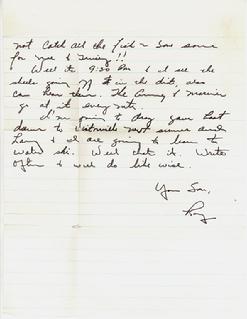 not catch all the fish - Save some
for me & Jimmy!!
Well its 9:30 PM & I see the
shells going off in the dist, also
can hear them. The Army & Marines
go at it every nite.
I'm going to drag your boat
down to next summer and
Larry & I are going to learn to
water ski. Well that it. Write
often & will do like wise.
Your Son,
Roy